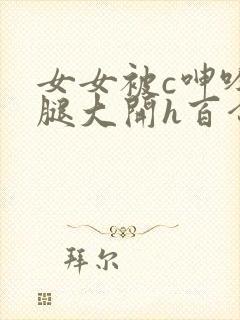 女女被c呻
腿大開h百
拜尔